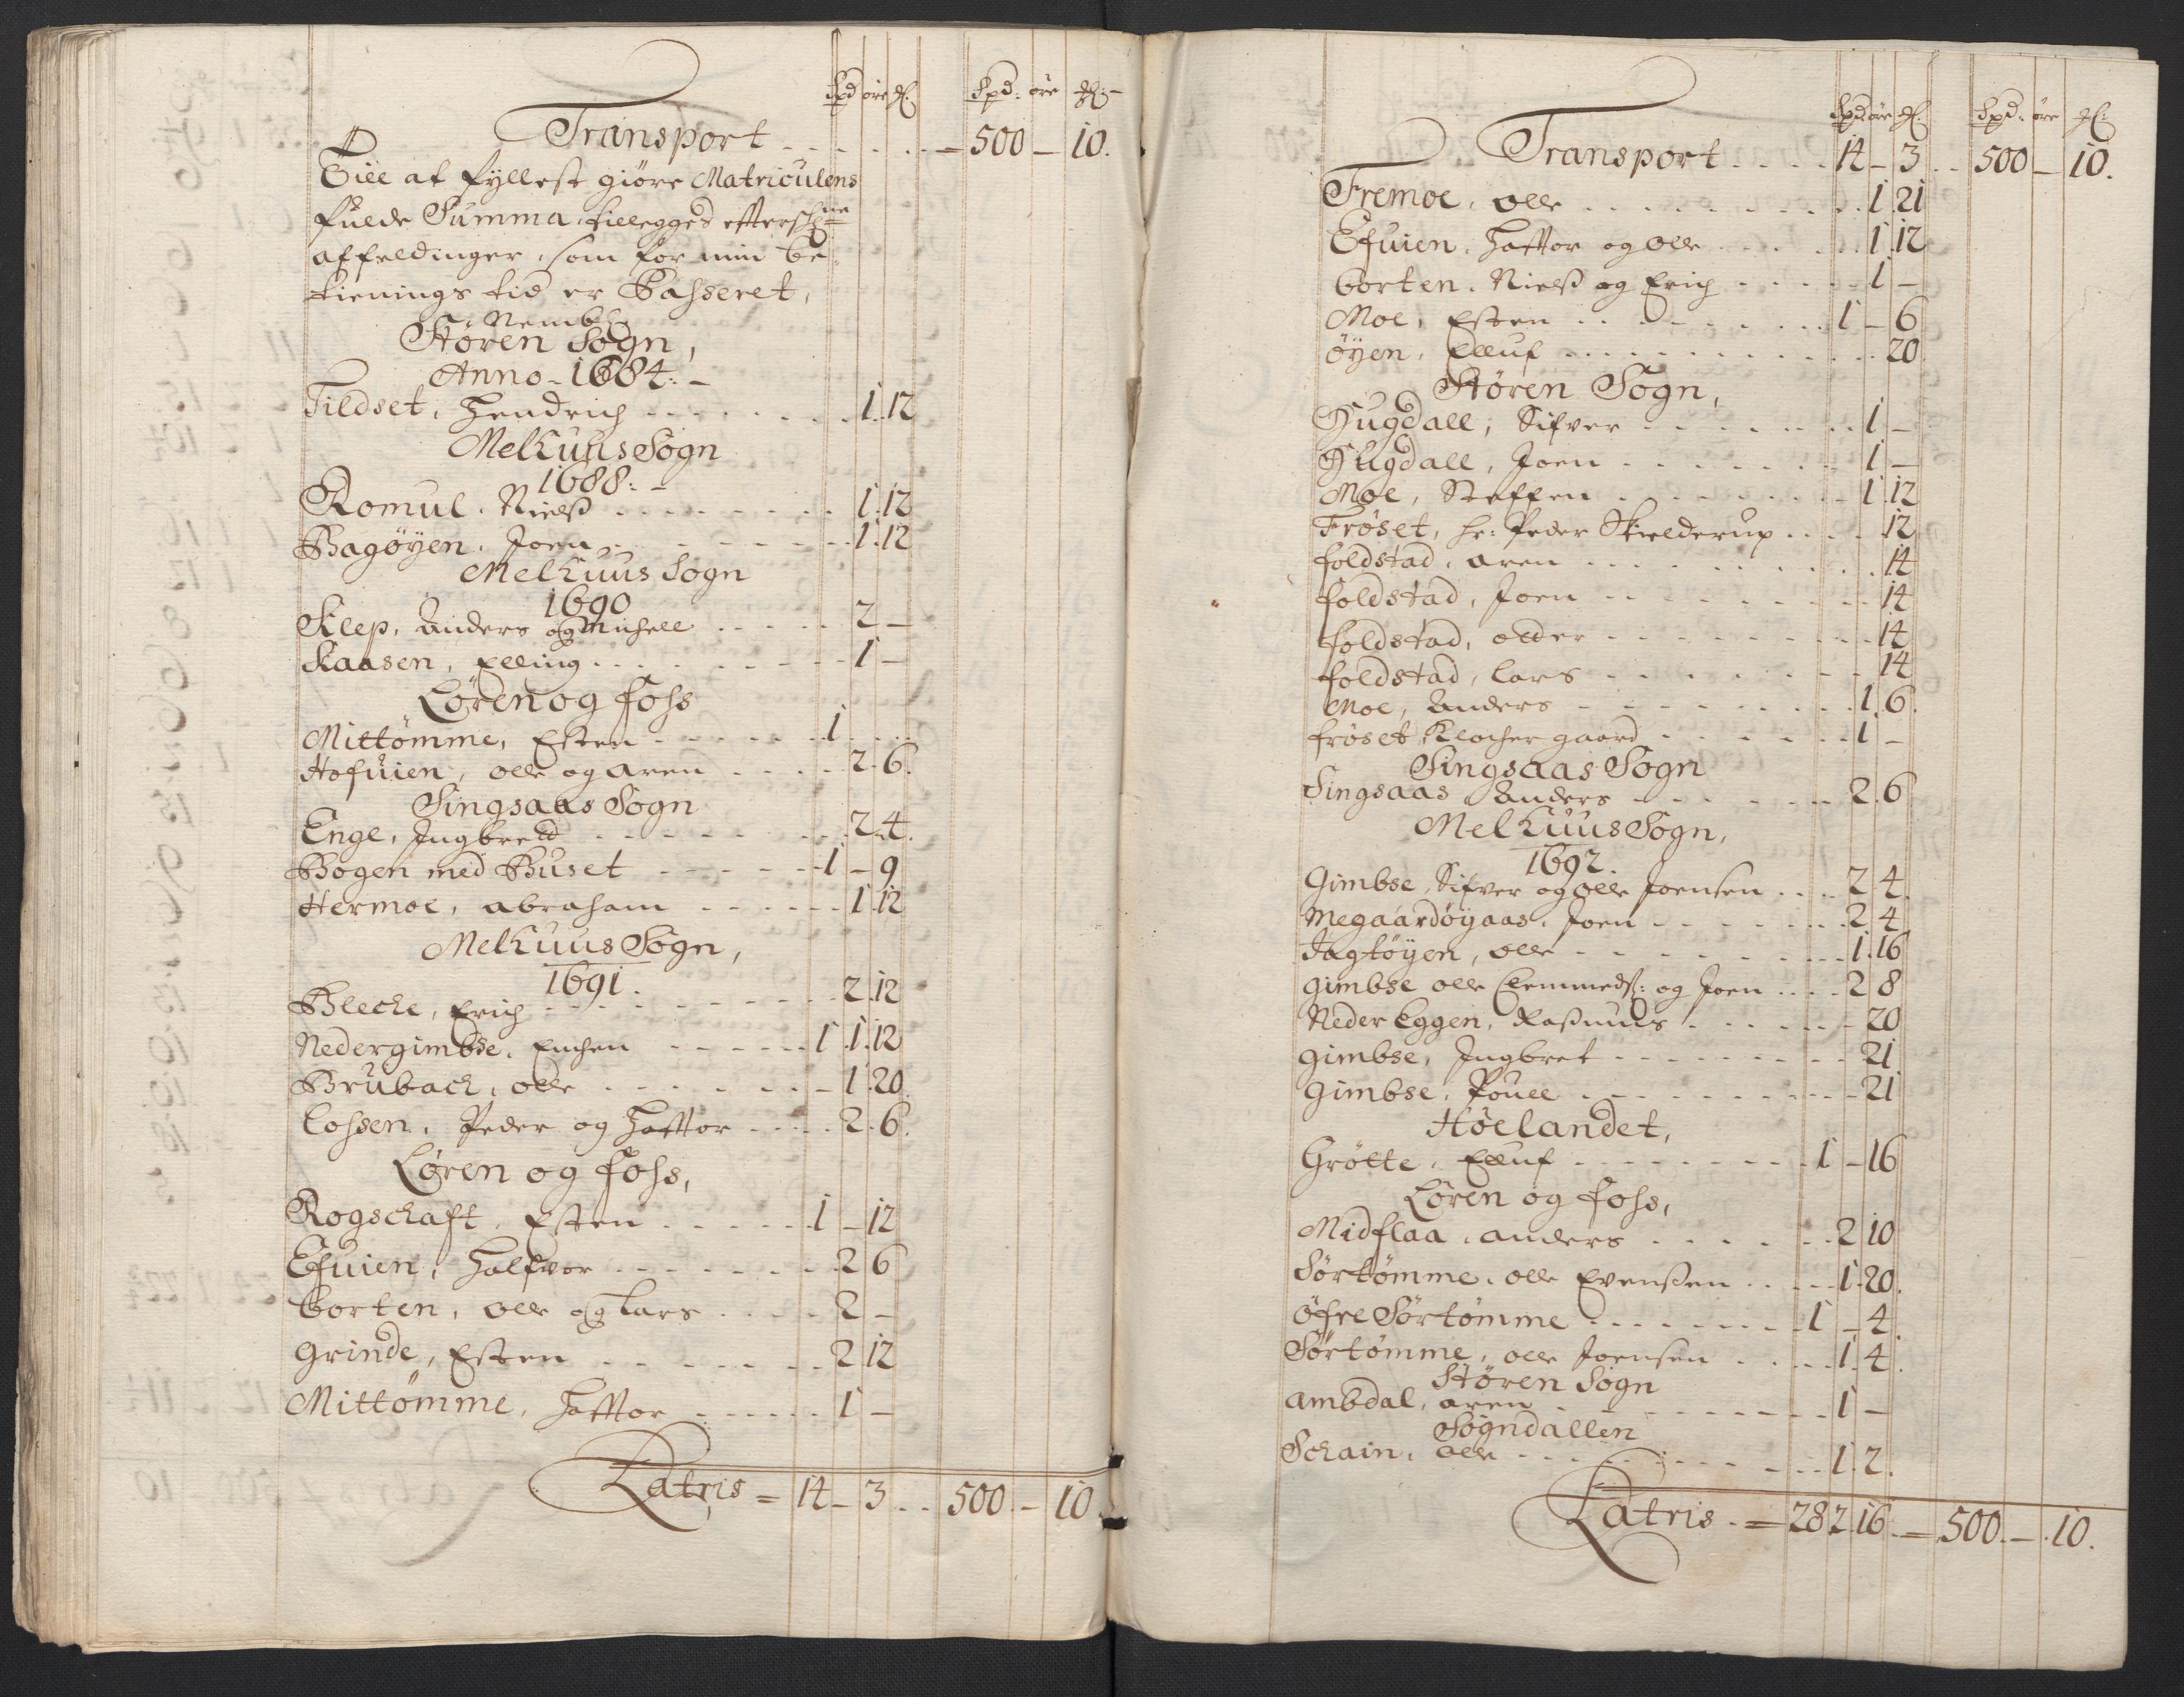 Spd øre
Spd: øre
Transport . . . . . . . – 500 – 10.
Till at fyllest giøre Matriculens
fulde Summa, tillegges effterschne
affeldinger, som for min be
tienings tid er Passeret,
Nembl
Støren Sogn,
Anno – 1684: –
Tildset, Hendrich . . . . . . . 1. 12
Melhuus Sogn
1688: –
Romul, Nielß . . . . . . . 1. 12
Bagøyen, Joen . . . . . . . 1. 12
Melhuus Sogn
1690
Klep, Anders og Michell . . . . . 2 –
Kaasen, Elling . . . . . . . 1 –
Løren og foss
Mittømme, Esten . . . . . . 1 . . .
Hofuien, olle og aren . . . . . 2. 6.
Singsaas Sogn
Enge, Ingbretd . . . . . . . 2. 4.
Bogen med Buset . . . . . . 1 – 9
Hermoe, abraham . . . . . . 1. 12
Melhuus Sogn,
1691.
Blecke, Erich . . . . . . . 2. 12
Nedergimbse, Enchen . . . . . . 1. 1. 12
Bruback, olle . . . . . . – 1. 20
Cossen, Peder og Haftor . . . . 2. 6.
Løren og foss,
Rogschaft, Esten . . . . . 1 – 12
Efuien, Halfvor . . . . . . . 2 6
borten, olle og Lars . . . . 2 –
grinde, Esten . . . . . . . 2 12
Mittømme, Haftor . . . . . . 1 –
Latris = 14 – 3 . . 500 – 10.
Spd: øre
Spd: øre
Transport . . . . 14 – 3 . . 500 – 10.
Fremoe, olle . . . . . . . . . 1. 21
Efuien, Haftor og olle . . . . . . 1. 12
borten, Nielß og Erich . . . . . 1 –
Moe, Esten . . . . . . . . . 1 – 6
øyen, Elluf . . . . . . . . . . . 20
Støren Sogn,
Hugdall, Sifver . . . . . . . 1 –
Hugdall, Joen . . . . . . . 1 –
Moe, Steffen . . . . . . . . 1. 12
Frøset, hr: Peder Skielderup . . . . 12
foldstad, aren . . . . . . . . . 14
foldstad, Joen . . . . . . . . . 14
foldstad, older . . . . . . . . . 14
foldstad, Lars . . . . . . . . 14
Moe, Anders . . . . . . . . . 1. 6.
frøset Klocher gaard . . . . . . 1 –
Singsaas Sogn
Singsaas Anders . . . . . . . 2. 6
Melhuus Sogn,
1692.
Gimbse, Sifver og olle Joensen . . . . 2 4.
Megaardøyaas, Joen . . . . . . . 2 4
Jagtøyen, olle . . . . . . . . . 1. 16
gimbse olle Clemmeds: og Joen . . . . 2 8
Neder Eggen, Raßmus . . . . . . 20
gimbse, Ingbret . . . . . . . . . 21
gimbse, Pouell . . . . . . . . . . 21
Høelandet,
Grøtte, Elluf . . . . . . . . 1 – 16
Løren og foss,
Midflaa, anders . . . . . . . 2 10
Sørtømme, olle Evenßen . . . . . 1. 20.
øfre Sørtømme . . . . . . . . 1 – 4.
Sørtømme, olle Joensen . . . . . 1. 4.
Støren Sogn
ambdal, aren . . . . . . . . . 1 –
Sogndallen
Schain, olle . . . . . . . . . . 1. 2.
Latris . = 28 2. 16 . – 500 . – . 10.